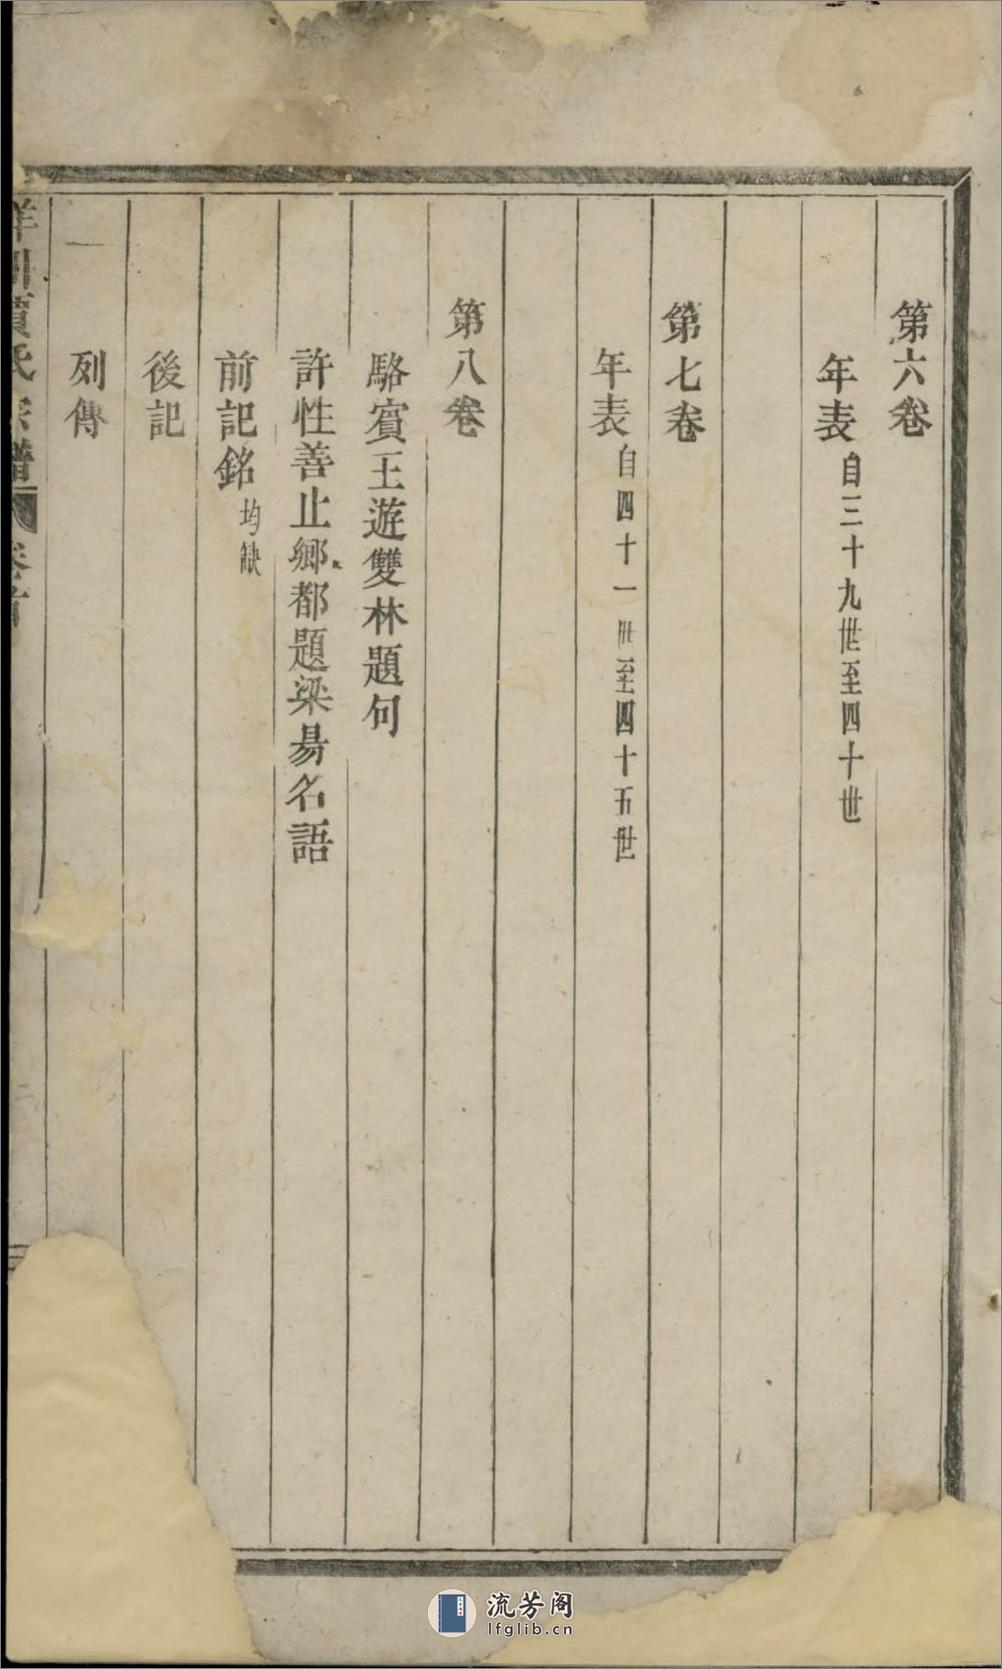 第六卷
年表自三十九世至四十世
第七卷
年表自四十一世至四十五世
第八卷
駱賓王遊雙林題句
許性善止鄉都題梁昜名語
前記銘均缺
後記
列傳
氏宗譜 卷首
二
流芳阁
lfglib.cn